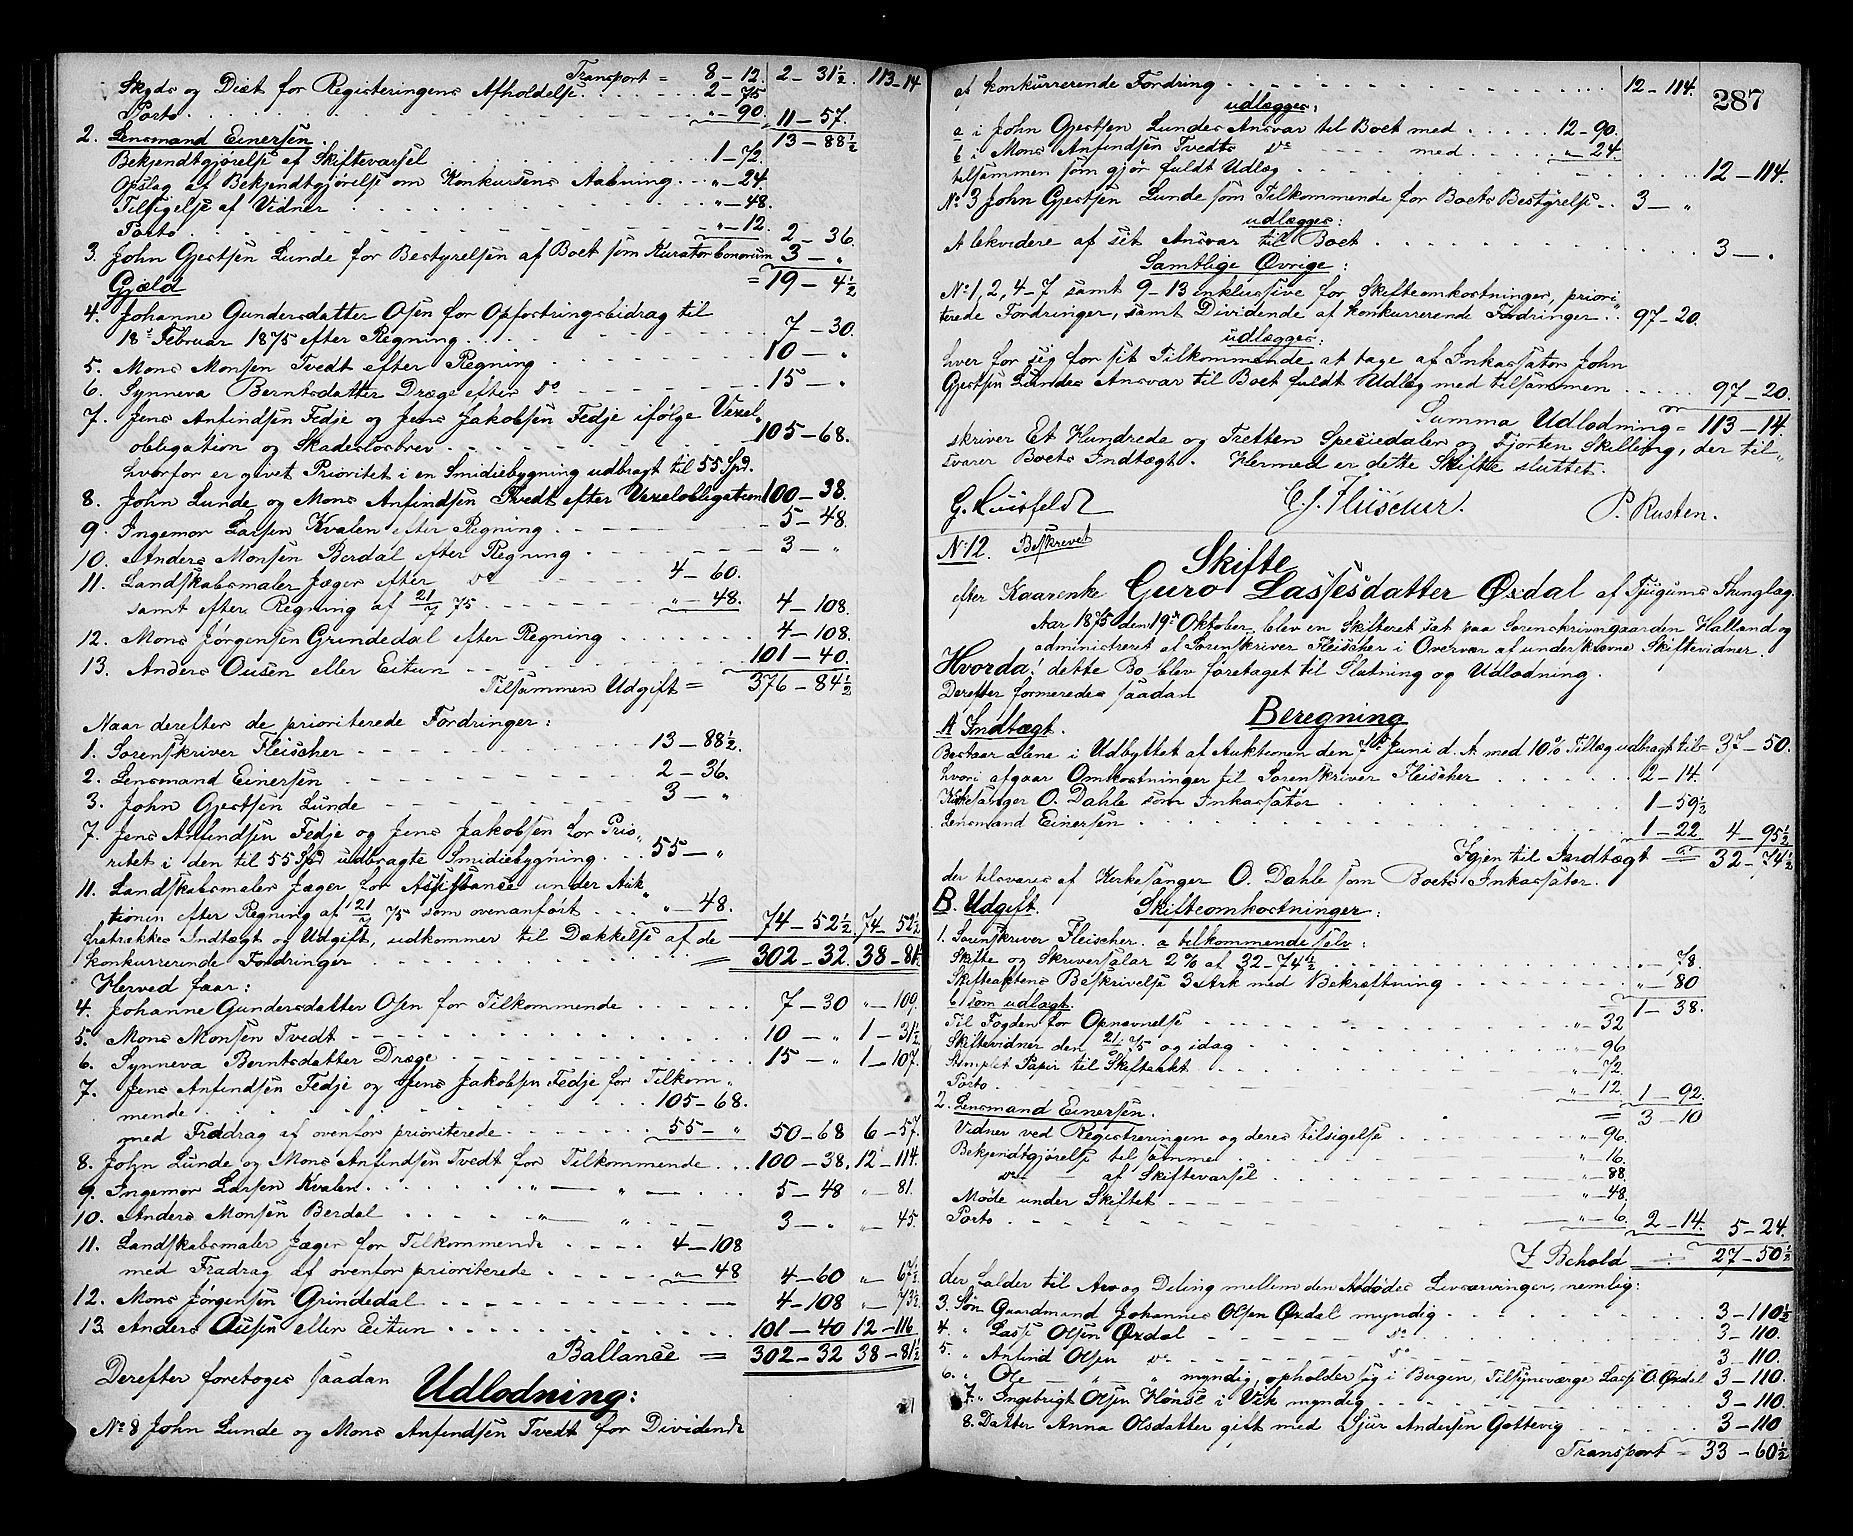 Transport = 8-12. 2-31½. 113-14
Skyds og Diæt for Registeringens Afholdelse . . . 2-75
Porto . . . „-90. 11-57.
2. Lensmand Einersen. 13-88½
Bekjendtgjørelse af Skiftevarsel . . . 1-72.
Opslag af Bekjendtgjørelse om Konkursens Aabning . . . „-24.
Tilsigelse af Vidner . . . „-48.
Porto . . . „-12. 2-36.
3. John Gjertsen Lunde for Bestyrelsen af Boet som Kurator bonorum 3-„
Gjæld = 19-4½
4. Johanne Gundersdatter Osen for Opfostringsbidrag til
18de Februar 1875 efter Regning . . . 7-30.
5. Mons Monsen Tvedt efter Regning . . . 10-„
6. Synneva Berntsdatter Dræge efter do . . . 15-„
7. Jens Anfindsen Fedje og Jens Jakobsen Fedje ifølge Vexel„
obligation og Skadesløsbrev . . . 105-68.
hvorfor er givet Prioritet i en Smidiebygning udbragt til 55 Spd.
8. John Lunde og Mons Anfindsen Tvedt efter Vexelobligation 100-38.
9. Ingemor Larsen Kvalen efter Regning . . . 5-48.
10. Anders Monsen Berdal efter Regning . . . 3-„
11. Landskabsmaler Jæger efter do . . . 4-60.
samt efter Regning af 21/7 75 . . . „-48. 4-108.
12. Mons Jørgensen Grindedal efter Regning . . . 4-108.
13. Anders Ousen eller Eitun . . . 101-40.
Tilsammen Udgift = 376-84½
Naar derefter de prioriterede Fordringer:
1. Sorenskriver Fleischer . . . 13-88½.
2. Lensmand Einersen . . . 2-36.
3. John Gjertsen Lunde . . . 3-„
7. Jens Anfindsen Fedje og Jens Jakobsen for Prio„
ritet i den til 55 Spd udbragte Smidiebygning . . . 55-„
11. Landskabsmaler Jæger for Assistance under Auk„
tionen efter Regning af 21/7 75 som ovenanført . . . „-48. 74-52½ 74-52½
fratrækkes Indtægt og Udgift, udkommer til Dækkelse af de
konkurrerende Fordringer . . . = 302-32. 38-81½
Herved faar:
4. Johanne Gundersdatter Osen for Tilkommende . . . 7-30 „-109.
5. Mons Monsen Tvedt . . . 10-„ 1-31½
6. Synneva Berntsdatter Dræge . . . 15-„ 1-107.
7. Jens Anfindsen Fedje og Jens Jakobsen Fedje for Tilkom„
mende . . . 105-68.
med Fradrag af ovenfor prioriterede . . . 55-„ 50-68 6-57.
8. John Lunde og Mons Anfindsen Tvedt for Tilkommende . . . 100-38. 12-114.
9. Ingemor Larsen Kvalen . . . „ — „ — . . . 5-48 „-81.
10. Anders Monsen Berdal . . . „ — „ — 3-„ „-45.
11. Landskabsmaler Jæger for Tilkommende . . . 4-108
med Fradrag af ovenfor prioriterede . . . „-48 4-60 „-67½
12. Mons Jørgensen Grindedal . . . 4-108 „-73½
13. Anders Ousen eller Eitun . . . 101-40 12-116
Ballance = 302-32 38-81½
Derefter foretoges saadan
Udlodning:
No 8 John Lunde og Mons Anfindsen Tvedt for Dividende
287
af konkurrerende Fordring . . . 12-114.
udlægges:
a i John Gjertsen Lundes Ansvar til Boet med . . . 12-90.
b i Mons Anfindsen Tvedts do med . . . „-24.
tilsammen som gjør fuldt Udlæg . . . 12-114.
No 3 John Gjertsen Lunde som Tilkommende for Boets Bestyrelse . . 3-„
udlægges:
at likvidere af sit Ansvar til Boet . . . 3-„
Samtlige Øvrige:
No 1, 2, 4-7 samt 9-13 inklusive for Skifteomkostninger, priori„
terede Fordringer, samt Dividende af konkurrerende Fordringer . . 97-20.
udlægges:
hver for sig for sit Tilkommende at tage af Inkassator John
Gjertsen Lundes Ansvar til Boet fuldt Udlæg med tilsammen . . . 97-20.
Summa Udlodning = 113-14.
skriver Et Hundrede og Tretten Speciedaler og Fjorten Skilling, der til„
svarer Boets Indtægt. Hermed er dette Skifte sluttet.
C. J. Fleischer. P. Rusten.
No 12. Beskrevet
Skifte
efter Kaarenke Guro Lassesdatter Øxdal af Tjugums Thinglag.
Aar 1875 den 19de Oktober blev en Skifteret sat paa Sorenskrivergaarden Halland og
administreret af Sorenskriver Fleischer i Overvær af underskrevne Skiftevidner.
Hvorda: dette Bo blev foretaget til Slutning og Udlodning.
Derefter formeredes saadan
Beregning
A Indtægt.
Bestaar alene i Udbyttet af Auktionen den Juni d. A. med 10% Tillæg udbragt til 37-50.
hvori afgaar Omkostninger til Sorenskriver Fleischer . . . 2-14.
Kirkesanger O. Dahle som Inkassator . . . 1-59½
Lensmand Einersen . . . 1-22 4-95½
Igjen til Indtægt = 32-74½
der tilsvares af Kirkesanger O. Dahle som Boets Inkassator.
B. Udgift. Skifteomkostninger:
1. Sorenskriver Fleischer. a tilkommende selv:
Skifte og Skriversalær 2% af 32-74½ . . . „-78
Skifteaktens Beskrivelse 3 Ark med Bekræftning . . . „-80
b som udlagt. 1-38.
Til Fogden for Opnævnelse . . . „-32
Skiftevidner den 21/5 75 og idag . . . „-96
Stemplet Papir til Skifteakt . . . „-72.
Porto . . . „-12. 1-92.
2. Lensmand Einersen. 3-10
Vidner ved Registreringen og deres Tilsigelse . . . „-96.
Bekjendtgjørelse til samme . . . „-16.
do — af Skiftevarsel . . . „-88.
Møde under Skiftet . . . „-48.
Porto . . . „-6. 2-14. 5-24.
I Behold 27-50½
der falder til Arv og Deling mellem den Afdødes Livsarvinger, nemlig:
3. Søn Gaardmand Johannes Olsen Øxdal myndig . . . 3-110½
4. „ Lasse Olsen Øxdal . . . do . . . 3-110.
5. „ Anfind Olsen do . . . do . . . 3-110.
6. „ Ole — „ — „ myndig, opholder sig i Bergen, Tilsynsværge Lasse O. Øxdal 3-110.
7. „ Ingebrigt Olsen Hønsi i Vik myndig . . . 3-110.
8. Datter Anna Olsdatter gift med Sjur Andersen Gottevig . . . 3-110
Transport = 33-60½